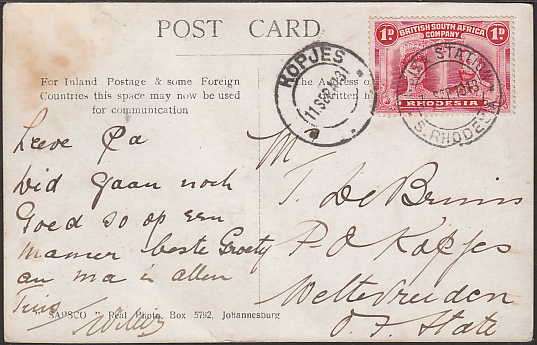 POST CARD
1D BRITISH SOUTH AFRICA COMPANY 1D
RHODESIA
KOPJES
11 SEP 13
S. RHODESIA
For Inland Postage & some Foreign
Countries this space may now be used
for communication
The Address o
written h
Leeve Pa
wid gaan noch
Goed so op een
manier beste Groety
an ma en allen
"SAPSCO" Real Photo, Box 5792, Johannesburg
M
T. De Bruin
P.O Kopjes
Weltevreiden
O. F. State